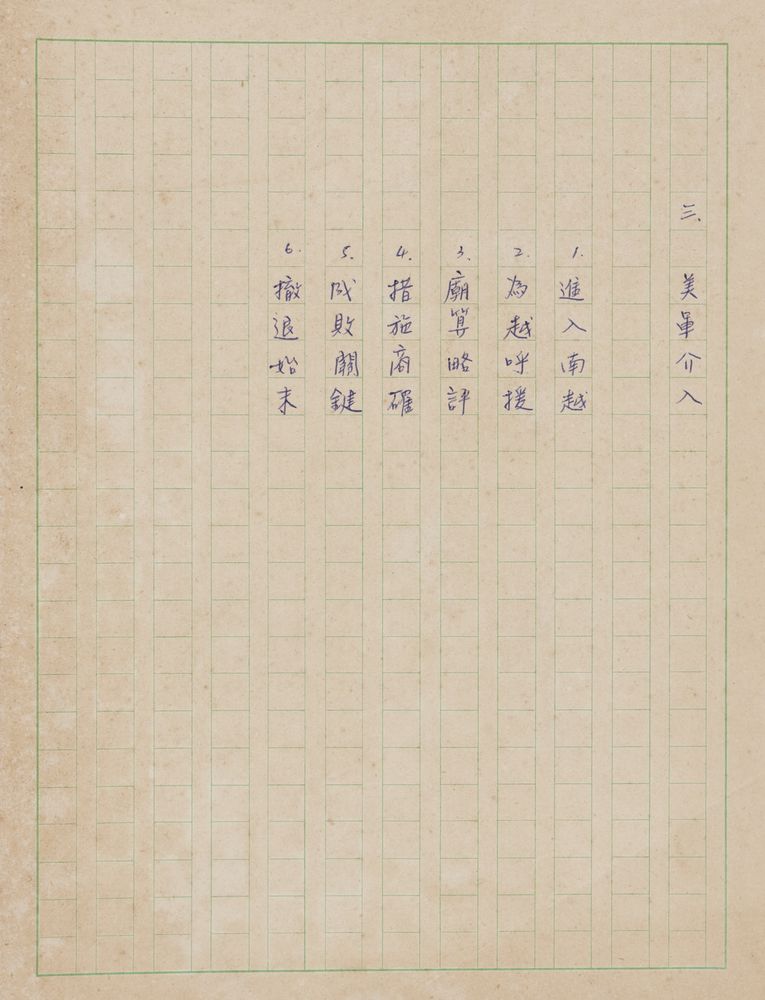 三、美軍介入
1. 進入南越
2. 為越呼援
3. 廟算略評
4. 措施商確
5. 成敗關鍵
6. 撤退始末